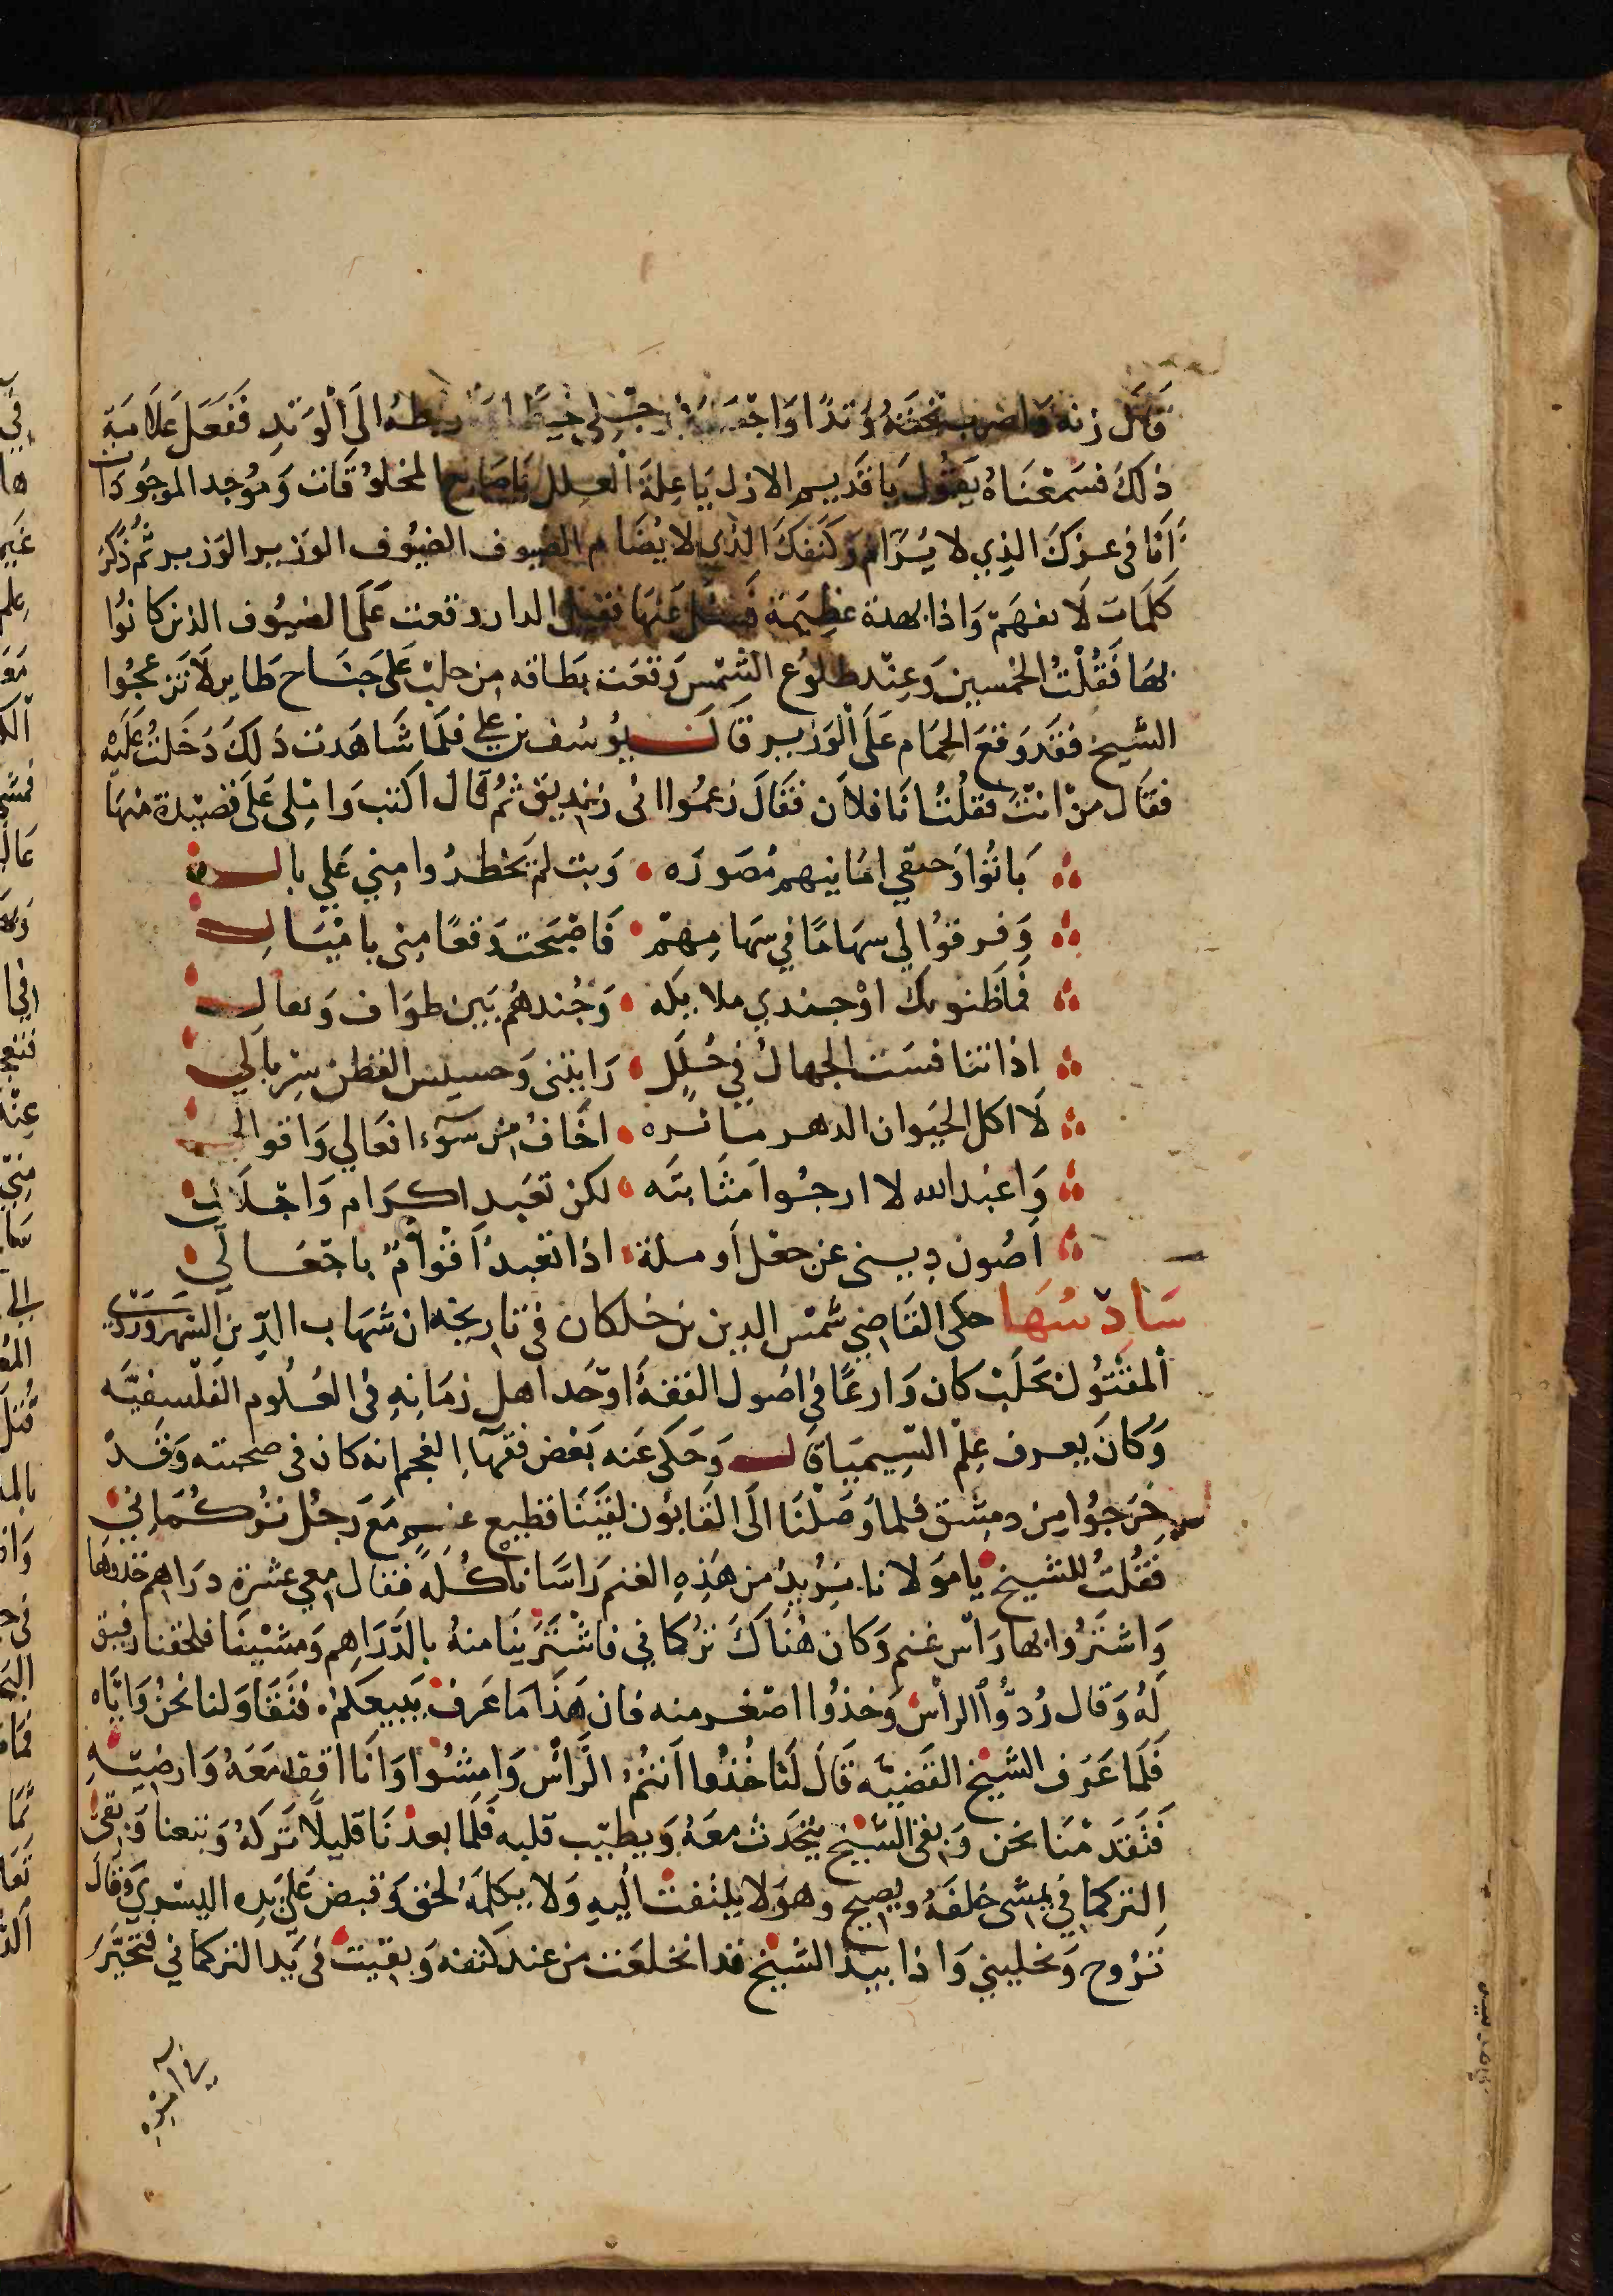 قال زنه واضرب تحته وتدا واجعل في رجلي خيطا واربطه الى الوتد ففعل غلامه
ذلك فسمعناه يقول يا قديم الازل يا علة العلل يا صانع المخلوقات وموجد الموجودات
انا في عزك الذي لا يرام وكنفك الذي لا يضام الضيوف الضيوف الوزير الوزير ثم ذكر
كلمات لا تفهم واذا بهدة عظيمة فسئل عنها فقيل الدار وقعت على الضيوف الذين كانوا
بها فقلت الخمسين وعند طلوع الشمس وقعت بطاقه من حلب على جناح طاير لا تزعجوا
الشيخ فقد وقع الحمام على الوزير قال يوسف بن علي فلما شاهدت ذلك دخلت عليه
فقال من انت فقلت انا فلان فقال زعموا اني زنديق ثم قال اكتب واملى علي قصيدة منها
باتوا وحتفي امانيهم مصوره وبت لم يخطروا مني على بال
وفرقوا لي سهاما في سهامهم فاصبحت وقعا مني باميال
فما ظنونك اذ جندي ملايكه وجندهم بين طواف وبقال
اذا تنافست الجهال في حلل رايتني وحسيس القطن سربالي
لا اكل الحيوان الدهر ماثره اخاف من سوء افعالي واقوالي
واعبد الله لا ارجوا مثابته لكن تعبد اكرام واجلال
اصون ديني عن جعل اومله اذا تعبد اقوام باجعالي
سادسها حكى القاضي شمس الدين بن خلكان في تاريخه ان شهاب الدين السهروردي
المقتول بحلب كان وارعا في اصول الفقه اوحد اهل زمانه في العلوم الفلسفيه
وكان يعرف علم السيميا قال وحكى عنه بعض فقهاء العجم انه كان في صحبته وقد
خرجوا من دمشق فلما وصلنا الى القابون لقينا قطيع غنم مع رجل تركماني
فقلت للشيخ يا مولانا نريد من هذه الغنم راسا ناكله فقال معي عشرة دراهم خذوها
واشتروا بها راس غنم وكان هناك تركماني فاشترينا منه بالدراهم ومشينا فلحقنا رفيق
له وقال ردوا الراس وخذوا اصغر منه فان هذا ما عرف يبيعكم فتقاولنا نحن واياه
فلما عرف الشيخ القضيه قال لنا خذوا انتم الراس وامشوا وانا اقف معه وارضيه
فتقدمنا نحن وبقى الشيخ يتحدث معه ويطيب قلبه فلما بعدنا قليلا تركه وتبعنا وبقى
التركماني يمشى خلفه ويصيح وهو لا يلتفت اليه ولا يكلمه لحق وقبض على يده اليسرى وقال
تروح وتخليني واذا بيد الشيخ قد انخلعت من عند كتفه وبقيت في يد التركماني فتحير